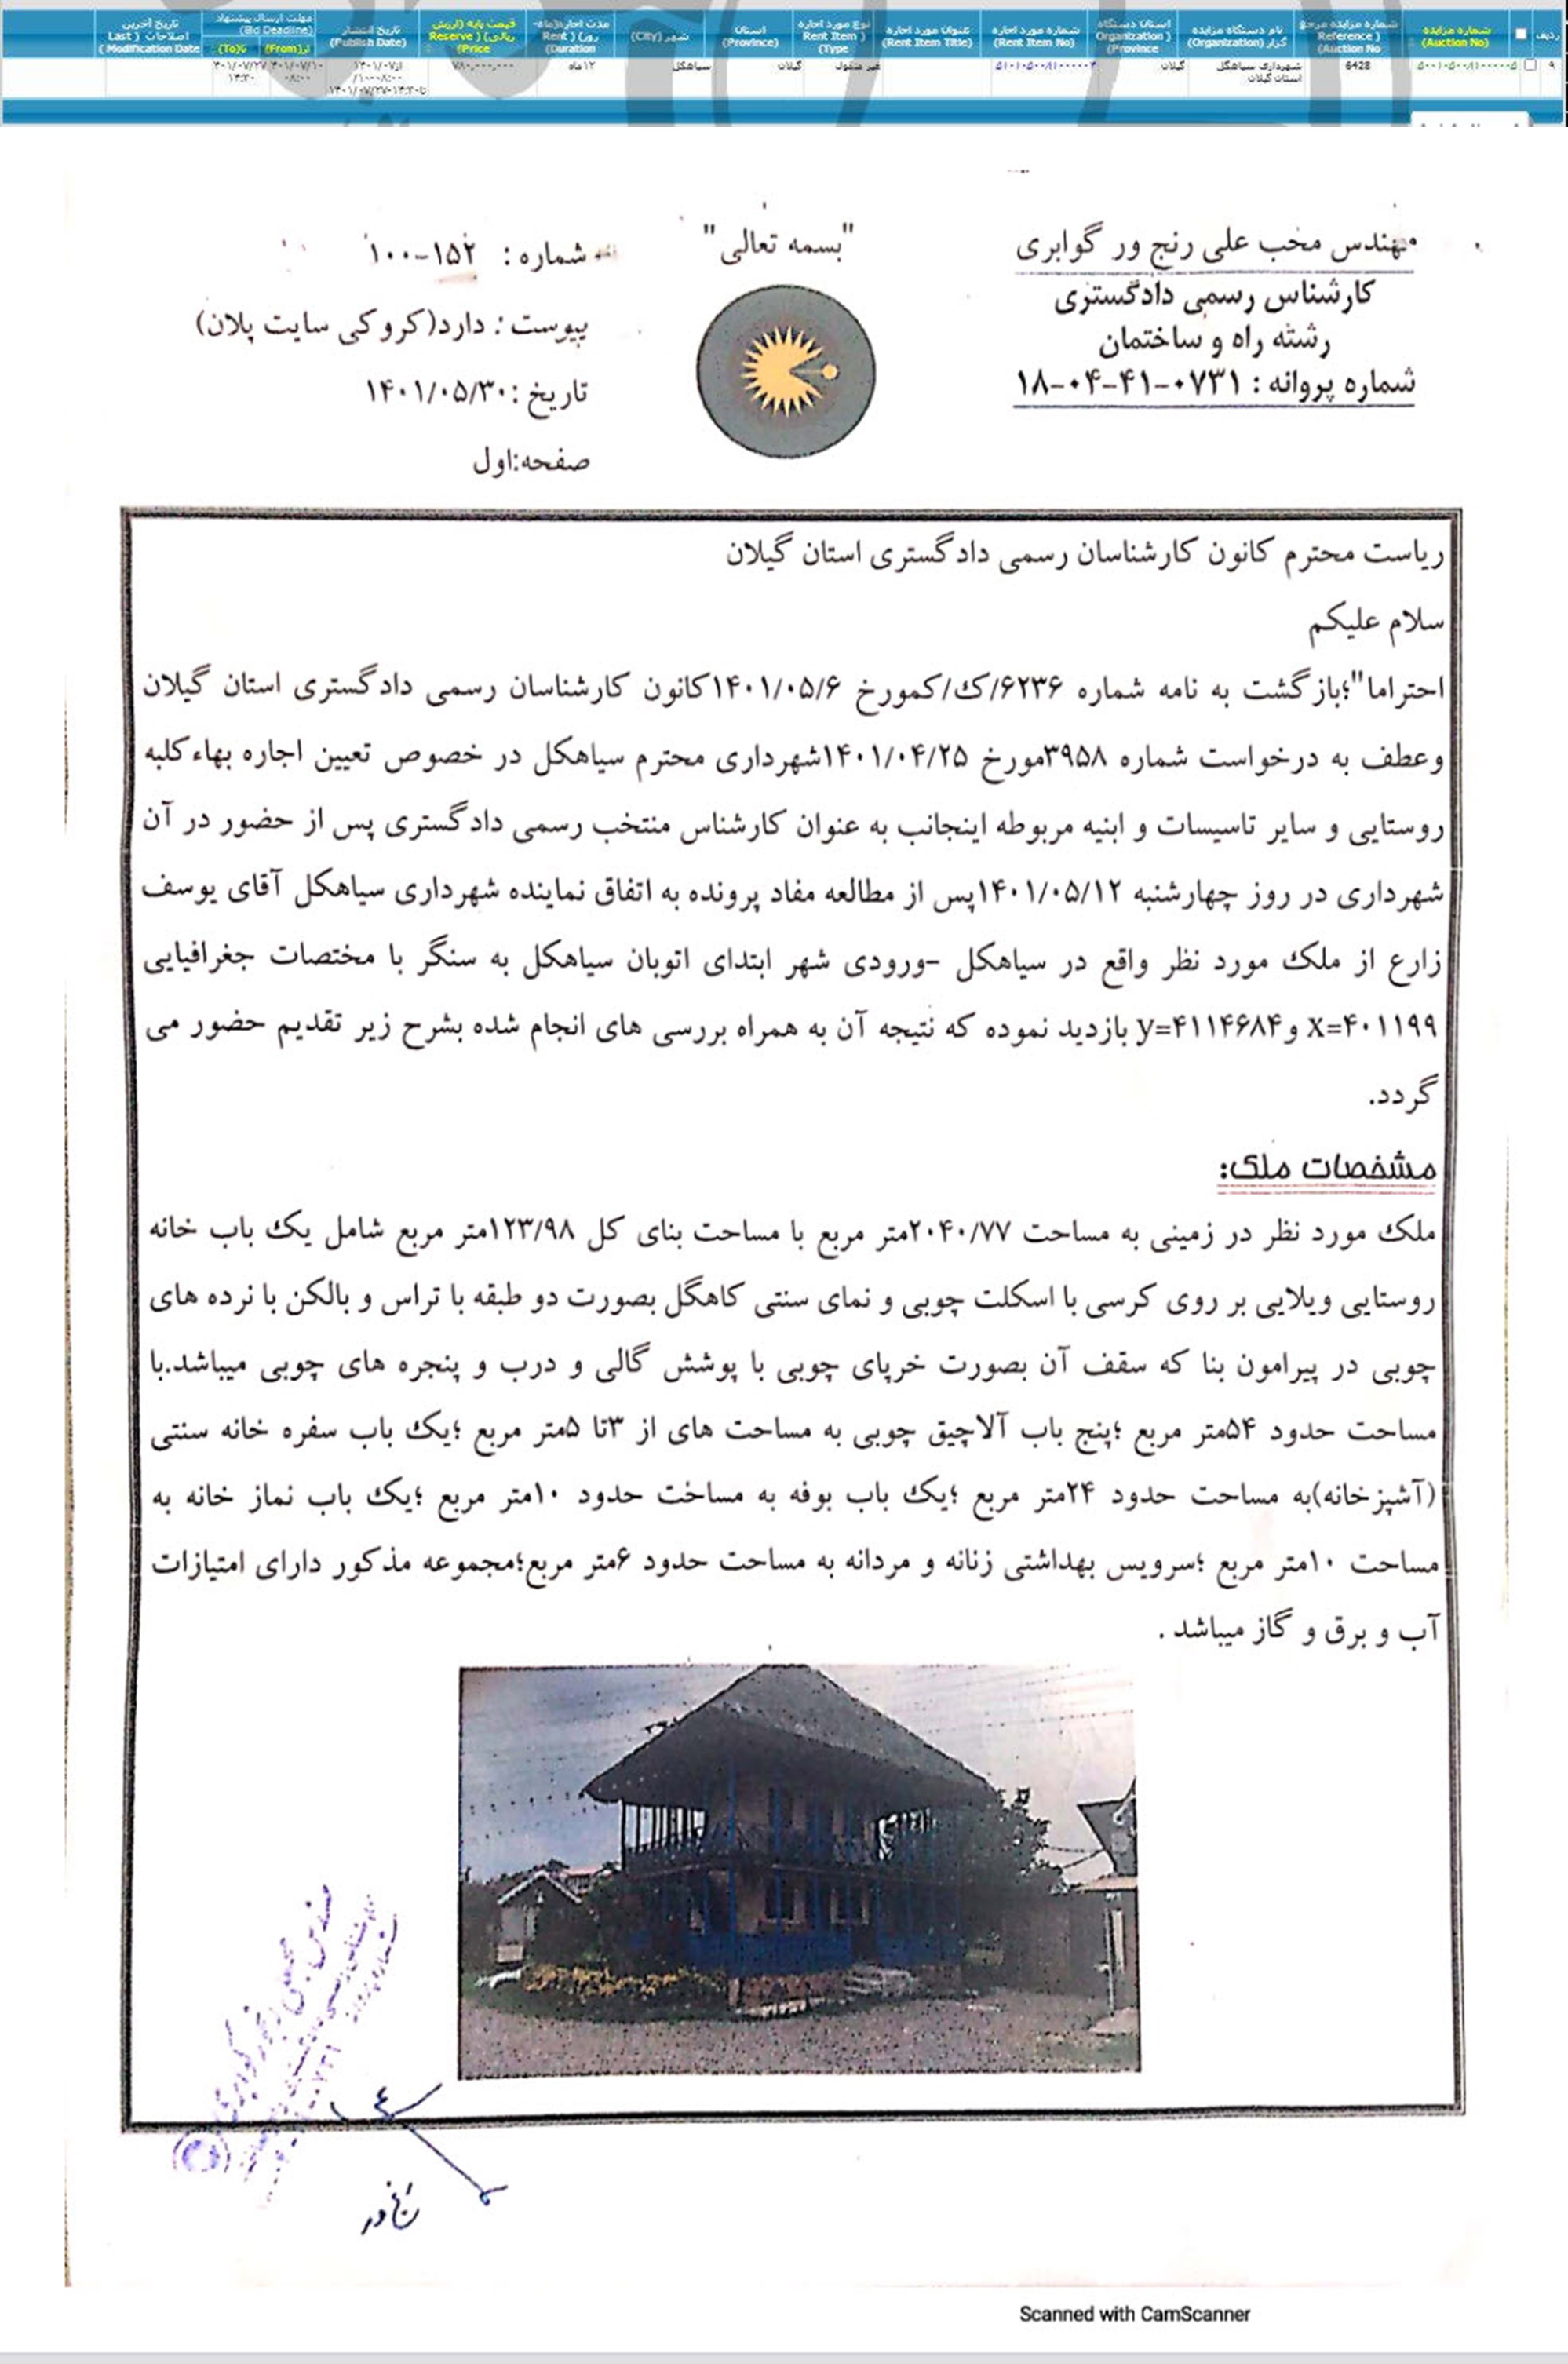 ردیف
شماره مزایده (Auction No)
شماره مزایده مرجع (Reference Auction No)
نام دستگاه مزایده گزار (Organization)
استان دستگاه (Organization Province)
شماره مورد اجاره (Rent Item No)
عنوان مورد اجاره (Rent Item Title)
نوع مورد اجاره (Rent Item Type)
استان (Province)
شهر (City)
مدت اجاره(ماه-روز) (Rent Duration)
قیمت پایه (ارزش ریالی) (Reserve Price)
تاریخ انتشار (Publish Date)
مهلت ارسال پیشنهاد (Bid Deadline)
از(From) تا(To)
تاریخ آخرین اصلاحات (Last Modification Date)
۹
6428
شهرداری سیاهکل استان گیلان
گیلان
غیر منقول
گیلان
سیاهکل
۱۲ماه
۷۸۰,۰۰۰,۰۰۰
مهندس محب علی رنج ور گوابری
کارشناس رسمی دادگستری
رشته راه و ساختمان
شماره پروانه : ۰۷۳۱-۴۱-۰۴-۱۸
"بسمه تعالی"
شماره : ۱۵۲-۱۰۰
پیوست : دارد(کروکی سایت پلان)
تاریخ :۱۴۰۱/۰۵/۳۰
صفحه:اول
ریاست محترم کانون کارشناسان رسمی دادگستری استان گیلان
سلام علیکم
احتراما"؛بازگشت به نامه شماره ۶۲۳۶/ک/کمورخ ۱۴۰۱/۰۵/۶کانون کارشناسان رسمی دادگستری استان گیلان
وعطف به درخواست شماره ۳۹۵۸مورخ ۱۴۰۱/۰۴/۲۵شهرداری محترم سیاهکل در خصوص تعیین اجاره بهاءکلبه
روستایی و سایر تاسیسات و ابنیه مربوطه اینجانب به عنوان کارشناس منتخب رسمی دادگستری پس از حضور در آن
شهرداری در روز چهارشنبه ۱۴۰۱/۰۵/۱۲پس از مطالعه مفاد پرونده به اتفاق نماینده شهرداری سیاهکل آقای یوسف
زارع از ملک مورد نظر واقع در سیاهکل -ورودی شهر ابتدای اتوبان سیاهکل به سنگر با مختصات جغرافیایی
x=۴۰۱۱۹۹ و y=۴۱۱۴۶۸۴ بازدید نموده که نتیجه آن به همراه بررسی های انجام شده بشرح زیر تقدیم حضور می
گردد.
مشخصات ملک:
ملک مورد نظر در زمینی به مساحت ۲۰۴۰/۷۷متر مربع با مساحت بنای کل ۱۲۳/۹۸متر مربع شامل یک باب خانه
روستایی ویلایی بر روی کرسی با اسکلت چوبی و نمای سنتی کاهگل بصورت دو طبقه با تراس و بالکن با نرده های
چوبی در پیرامون بنا که سقف آن بصورت خرپای چوبی با پوشش گالی و درب و پنجره های چوبی میباشد.با
مساحت حدود ۵۴متر مربع ؛پنج باب آلاچیق چوبی به مساحت های از ۳تا ۵متر مربع ؛یک باب سفره خانه سنتی
(آشپزخانه)به مساحت حدود ۲۴متر مربع ؛یک باب بوفه به مساخت حدود ۱۰متر مربع ؛یک باب نماز خانه به
مساحت ۱۰متر مربع ؛سرویس بهداشتی زنانه و مردانه به مساحت حدود ۶متر مربع؛مجموعه مذکور دارای امتیازات
آب و برق و گاز میباشد .
Scanned with CamScanner